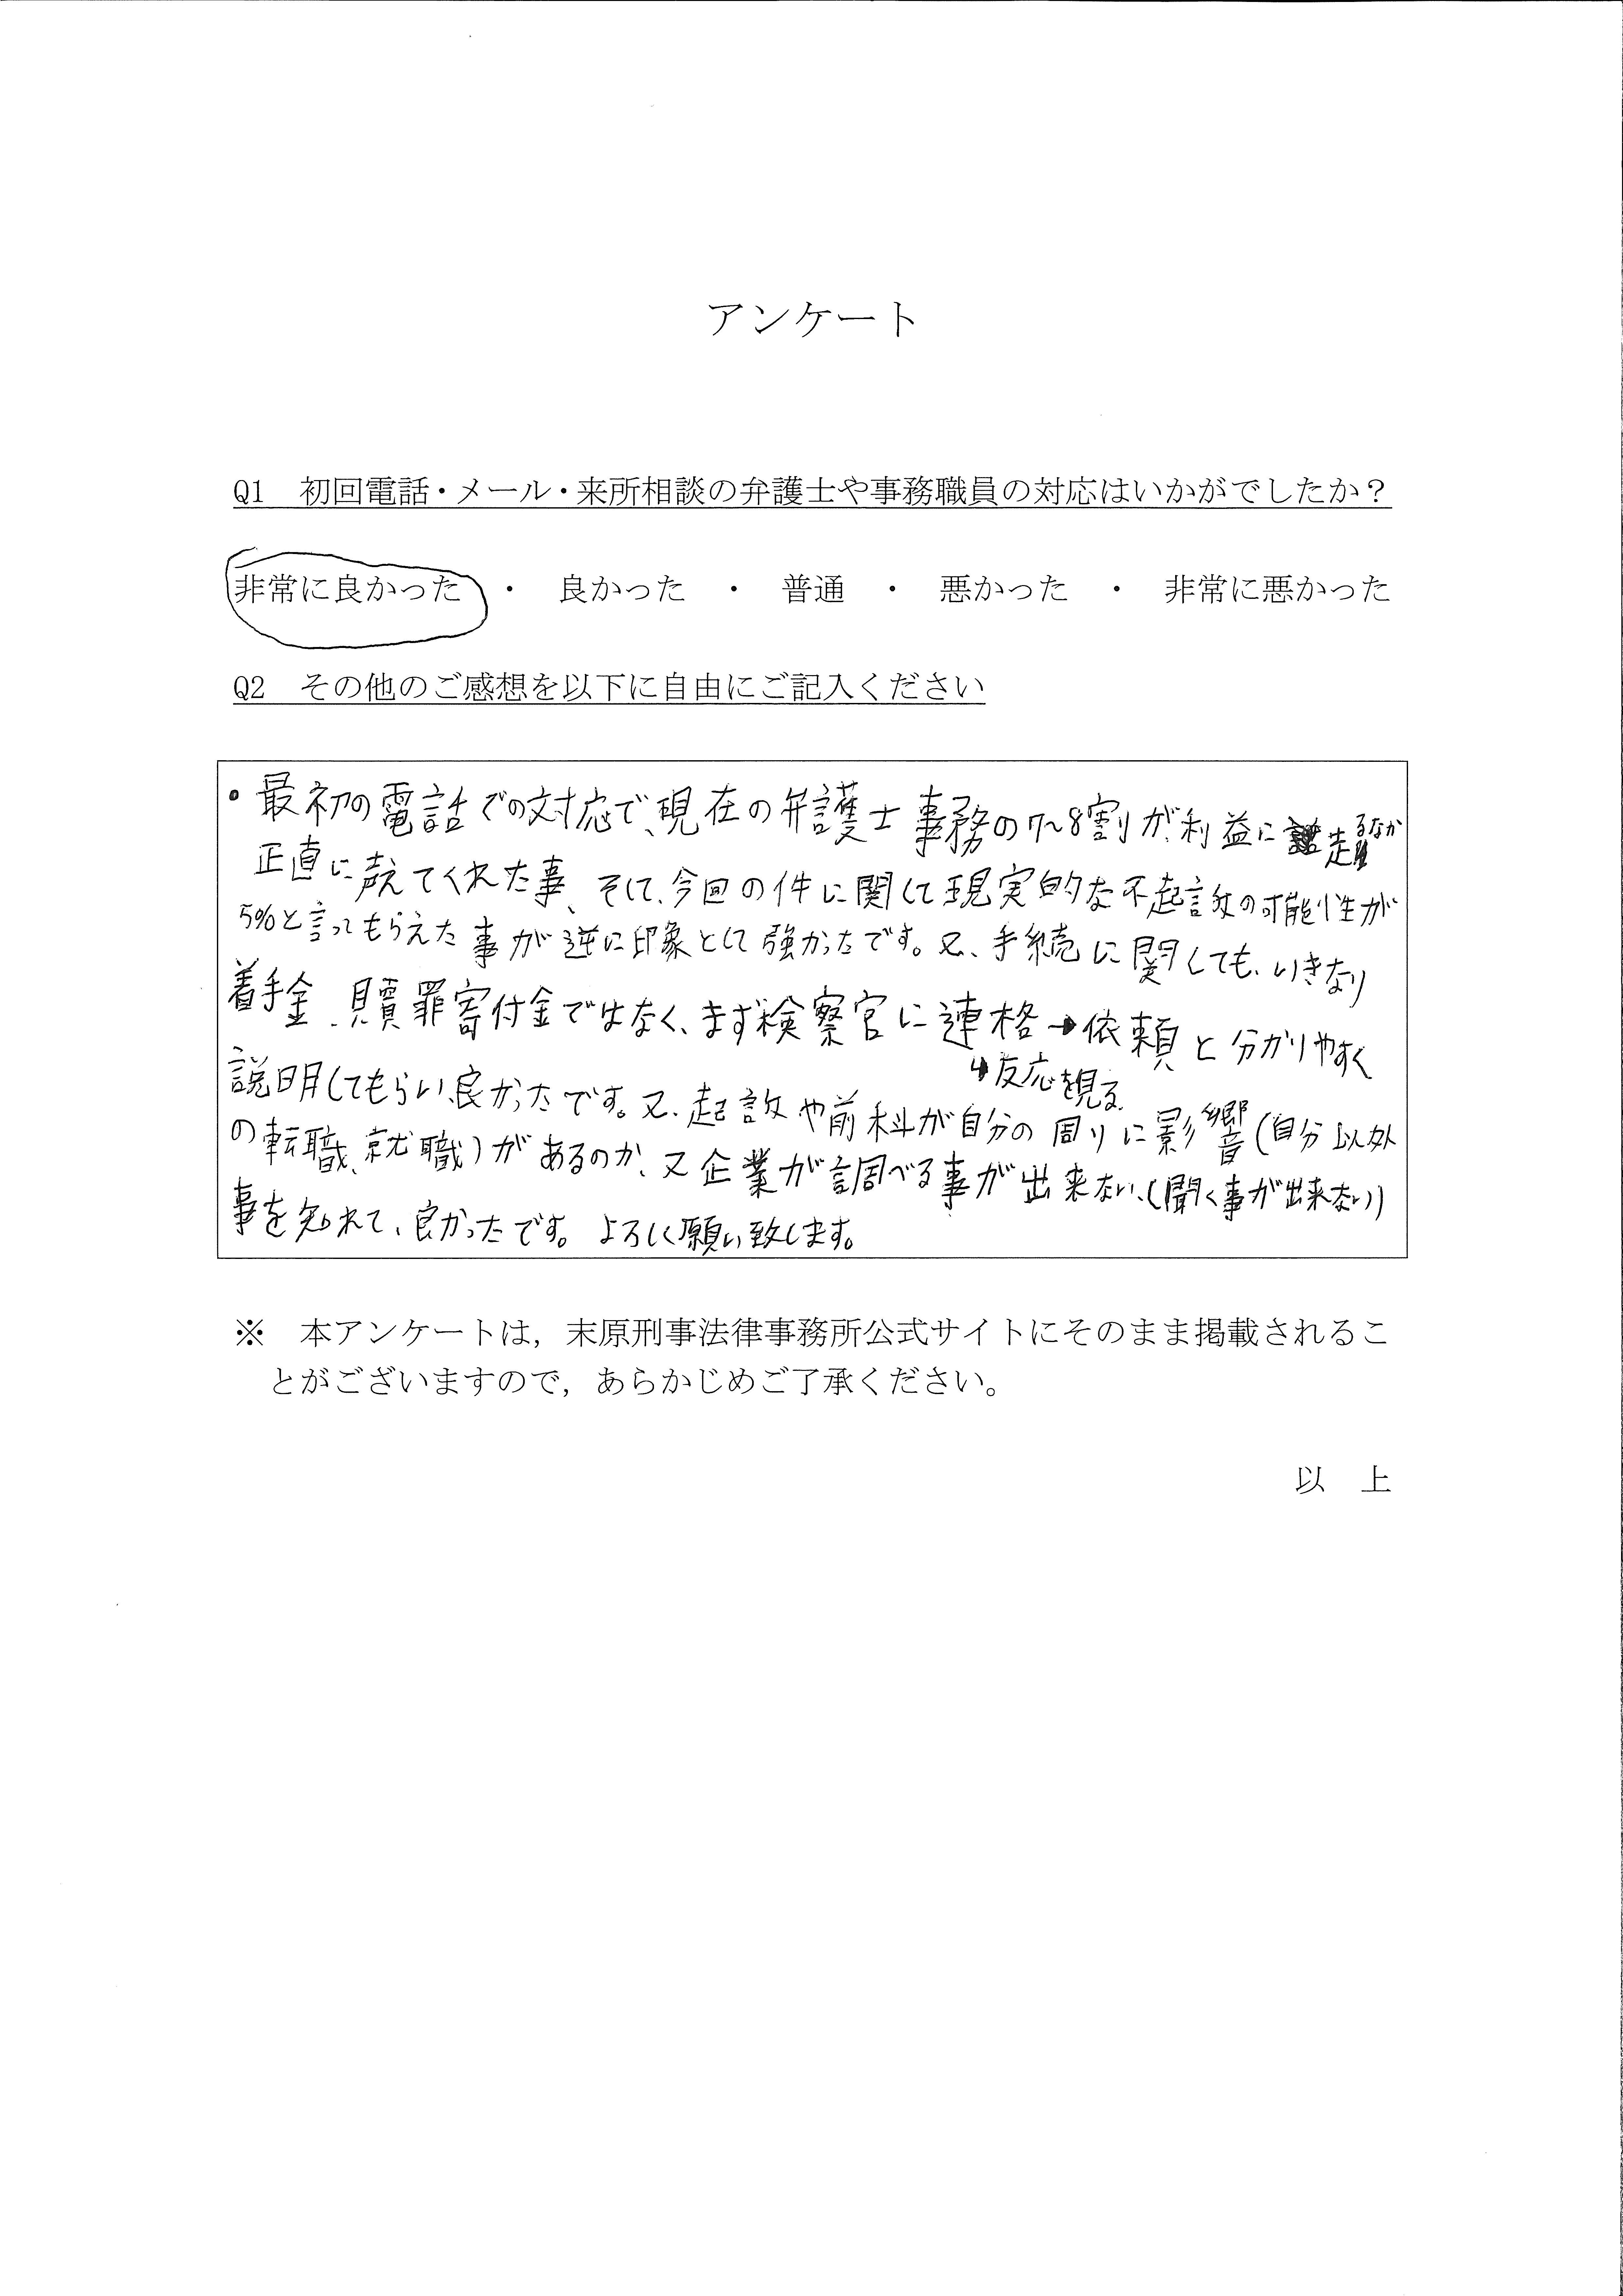 アンケート
Q1　初回電話・メール・来所相談の弁護士や事務職員の対応はいかがでしたか？
非常に良かった　・　良かった　・　普通　・　悪かった　・　非常に悪かった
Q2　その他のご感想を以下に自由にご記入ください
・最初の電話での対応で、現在の弁護士事務の7〜8割が、利益に走るなか
正直に えてくれた事、そして、今回の件に関して現実的な不起訴の可能性が
5%と言ってもらえた事が逆に印象として強かったです。又、手続に関しても、いきなり
着手金、贖罪寄付金ではなく、まず検察官に連格→依頼と分かりやすく
↳反応を見る
説明してもらい、良かったです。又、起訴や前科が自分の周りに影響(自分以外
の転職、就職)があるのか、又企業が調べる事が出来ない、(聞く事が出来ない)
事を知れて、良かったです。よろしく願い致します。
※　本アンケートは，末原刑事法律事務所公式サイトにそのまま掲載されるこ
とがございますので，あらかじめご了承ください。
以　上